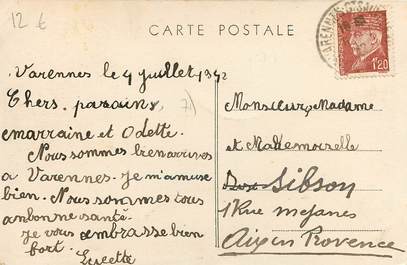 12 €
CARTE POSTALE
1,20
Varennes le 4 juillet 1942
Chers parains
emarraine et Odette.
Nous sommes bien arrives
a Varennes. Je m'amuse
bien. Nous sommes tous
anbonne santé.
Je vous embrasse bien
fort. Lucette
Monsieur, Madame
et Mademoiselle
Gibson
1 Rue mejanes
Aix en Provence